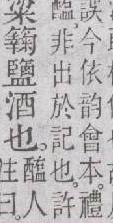 誤今依韵會本。禮
醢非出於記也。許
粱鹽酒也。醢人
生曰